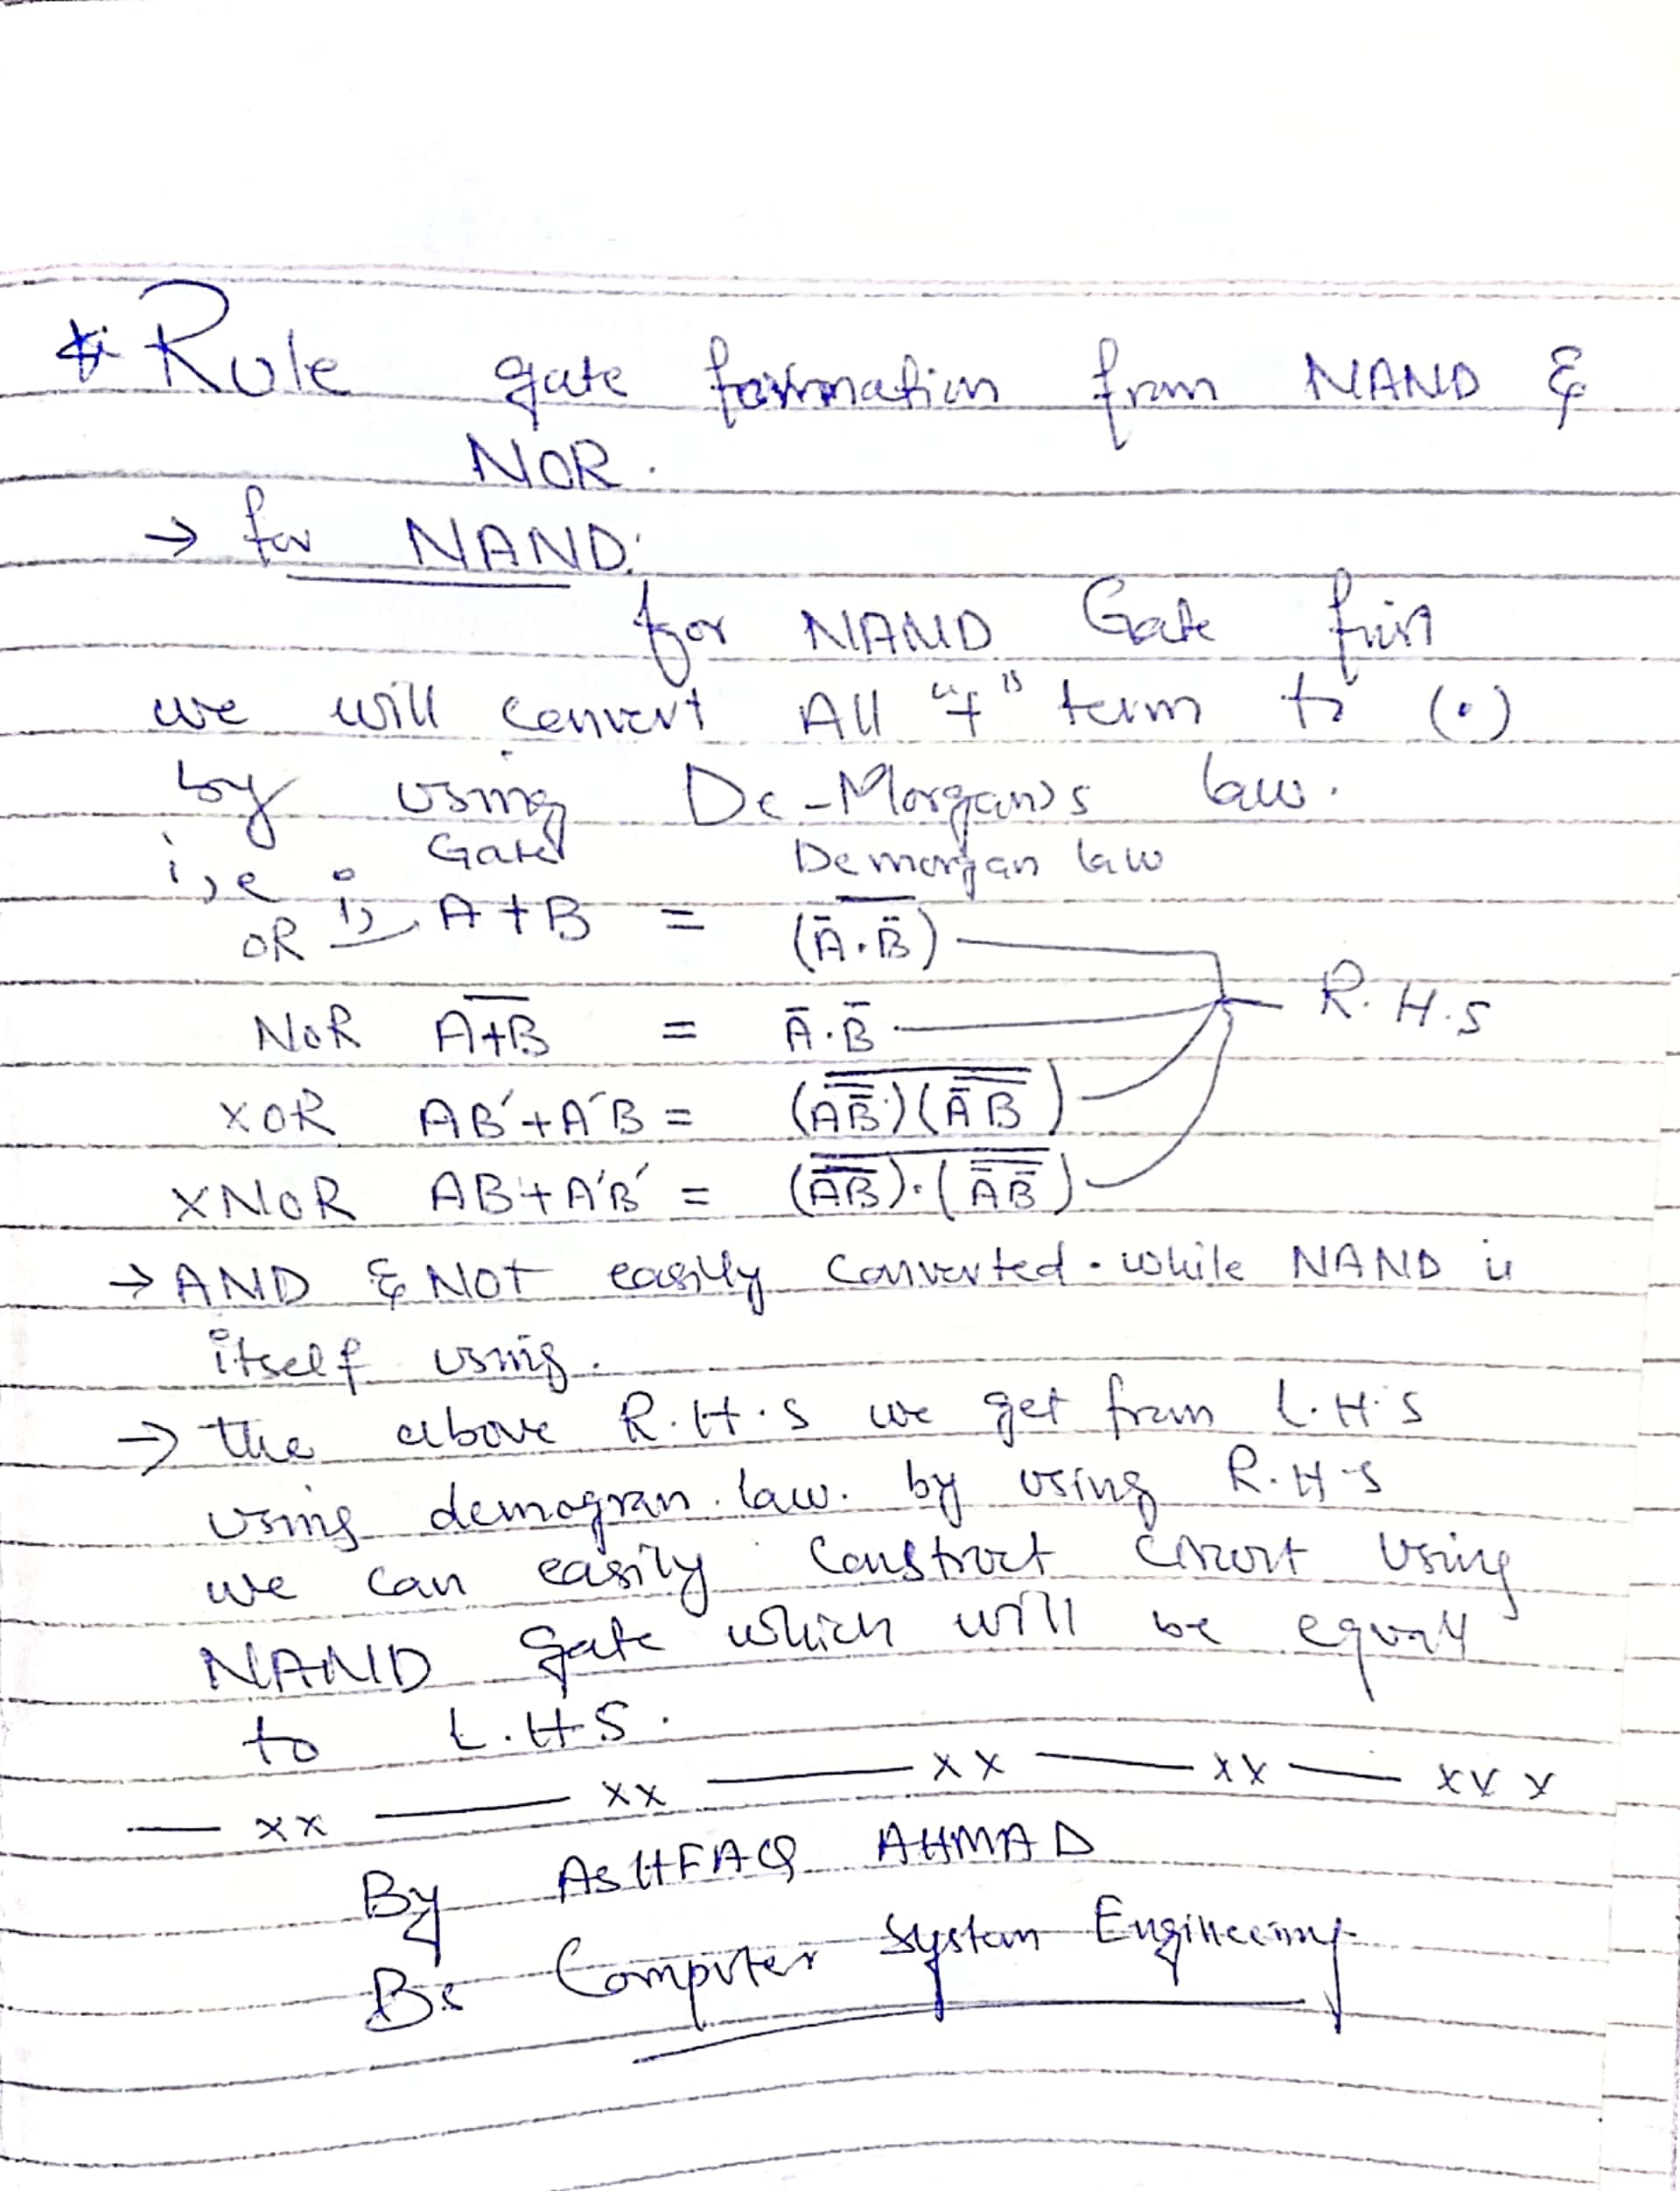 * Rule gate formation from NAND &
NOR.
→ for NAND:
for NAND Gate first
we will convert All "+" term to (•)
by using De-Morgan's law.
i,e : Gate Demorgan law
OR 1) A+B = \overline{(Ā.B̄)}
NOR \overline{A+B} = Ā.B̄
XOR AB′+A′B = \overline{\overline{(AB̄)}\overline{(ĀB)}}
XNOR AB+A′B′ = \overline{\overline{(AB)}.\overline{(ĀB̄)}}
→ AND & NOT easily converted. while NAND is
itself using.
→ the above R.H.S we get from L.H.S
using demogran law. by using R.H.S
we can easily construct circuit using
NAND gate which will be equal
to L.H.S.
— xx — xx — xx — xx — xxx
By ASHFAQ AHMAD
Bs Computer System Engineering
R.H.S